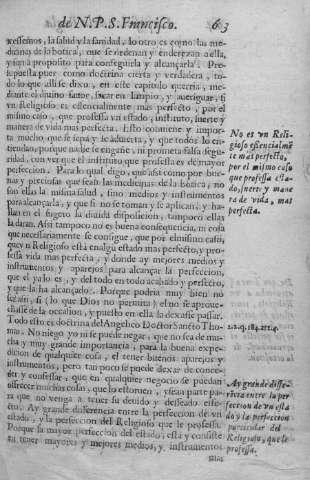 de N.P.S. Francisco. 63
vessemos, la salud y la sanidad, lo otro es como las me-
dicinas de la botica, que se ordenan y enderezan a ella,
y son a proposito para conseguirla y alcançarla. Pre-
supuesta pues como doctrina cierta y verdadera, to-
do lo que alli se dixo, en este capitulo querria, me-
diante el divino favor, sacar en limpio, y averiguar, si
vn Religioso es essencialmente mas perfecto, por el
mismo caso, que professa vn estado, instituto, suerte y
manera de vida mas perfecta. Esto conuiene y impor-
ta mucho, que se sepa y se aduierta, y que todos lo en-
tiendan, porque nadie se engañe ni prometa falsa segu-
ridad, con ver que el instituto que professa es de mayor
perfeccion. Para lo qual digo, que assi como por bue-
nas y preciosas que sean las medicinas de la botica, no
son ellas la misma salud, sino medios y instrumentos
para alcançarla, y que si no se toman y se aplican, y ha-
llan en el sugeto la diuida disposicion, tampoco ellas
la daran. Assi tampoco no es buena consequencia, ni cosa
que necessariamente se consigue, que por el mismo caso,
que vn Religioso està en algun estado mas perfecto, y pro-
fessa vida mas perfecta, y donde ay mejores medios y
instrumentos y aparejos para alcançar la perfeccion,
que el ya lo es, y del todo es todo acabado y perfecto,
y que la ha alcançado. Porque podria muy bien no
ser assi, si (lo que Dios no permita) el no se aproue-
chasse de la occasion, y puesto en ella la dexasse passar.
Todo esto es doctrina del Angelico Doctor Sancto Tho-
mas. No niego yo ni se puede negar, que no sea de mu-
cha y muy grande importancia, para la buena expe-
dicion de qualquiera cosa, el tener buenos aparejos y
instrumentos, pero tampoco se puede dexar de conce-
der y confessar, que en qualquier negocio se puedan
ofrecer muchas cosas, que lo estoruen, y sean parte pa-
ra que no venga a tener su deuido y desseado effe-
cto. Ay grande differencia entre la perfeccion de vn
estado, y la perfeccion del Religioso que le professa.
Porque la mayor perfeccion del estado, esta y consiste
en tener mayores y mejores medios, y instrumentos
No es vn Reli-
gioso essencialme
te mas perfecto,
por el mismo caso
que professa esta-
do, suerte y mane
ra de vida, mas
perfecta.
2.2.q. 184. art.4.
Ay grande diffe-
rēcia entre la per
feccion de vn esta
do y la perfeccion
particular del
Religioso, que le
professa.